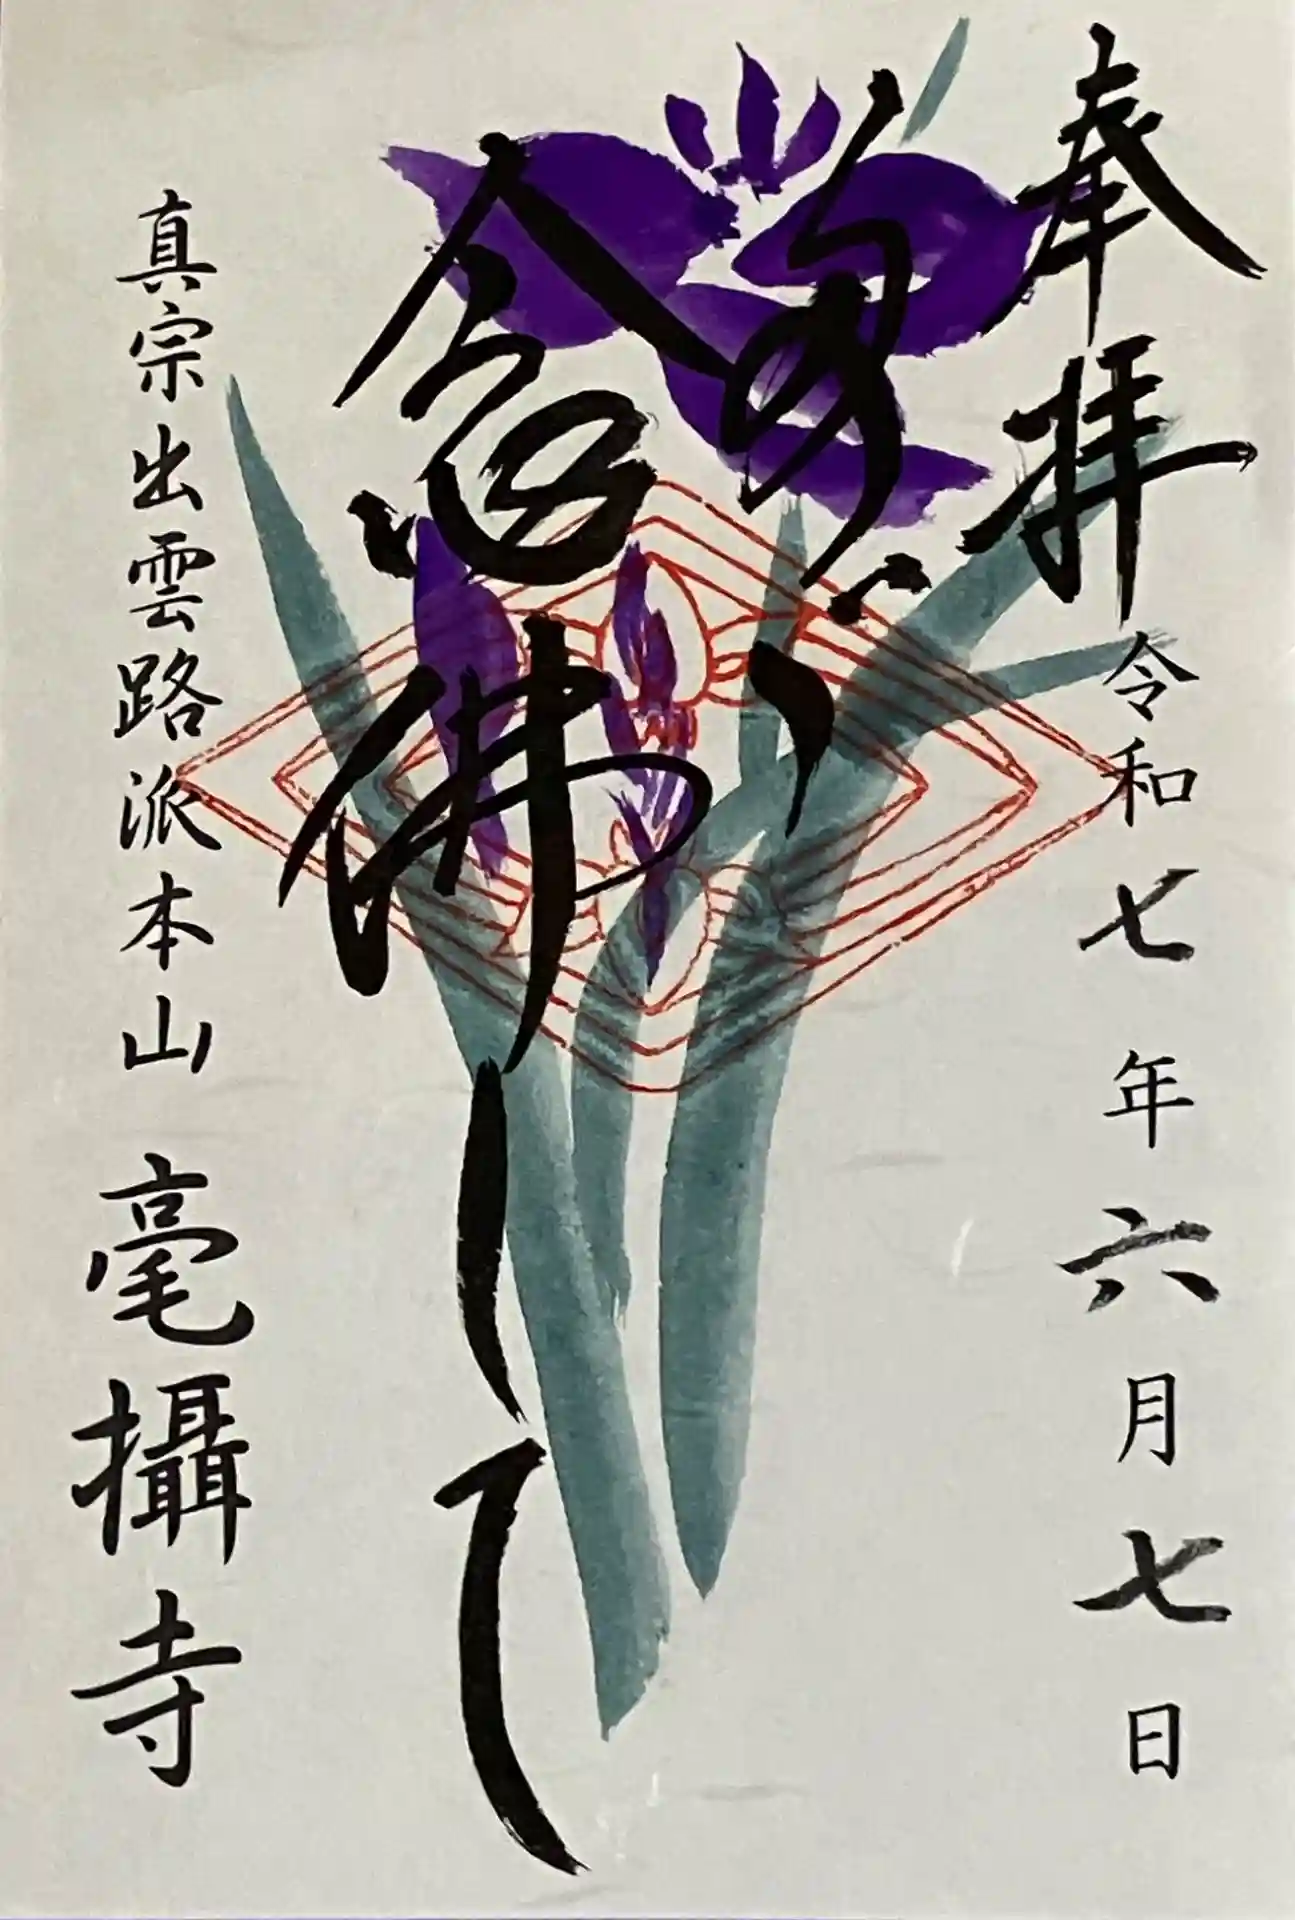 奉拝 令和七年六月七日
念佛して
真宗出雲路派本山 毫攝寺